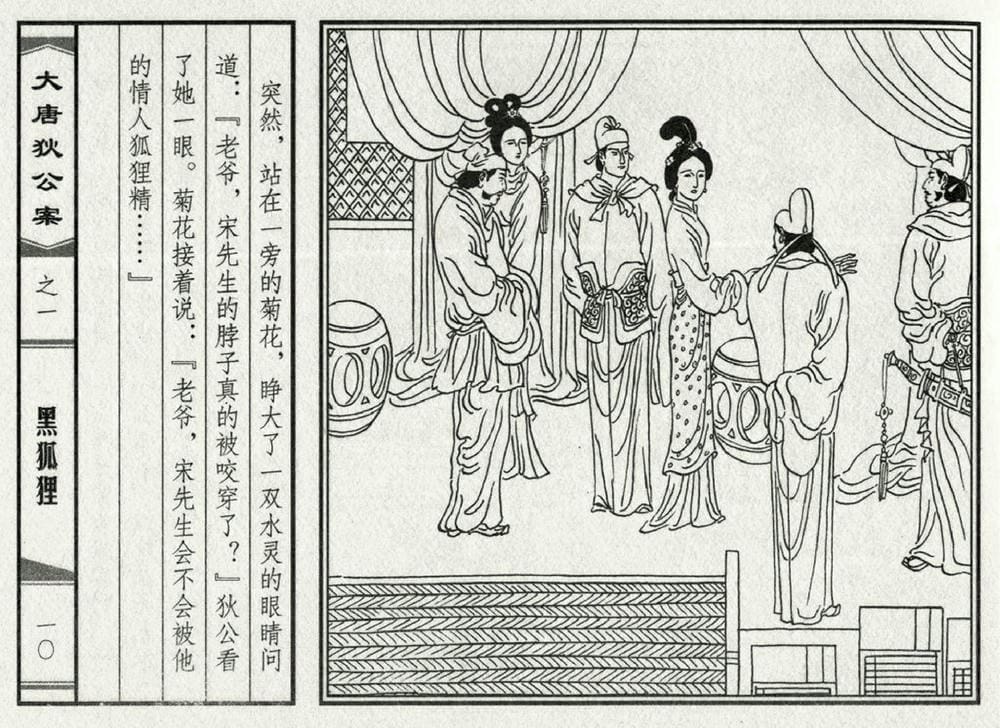 突然，站在一旁的菊花，睁大了一双水灵的眼睛问
道：『老爷，宋先生的脖子真的被咬穿了？』狄公看
了她一眼。菊花接着说：『老爷，宋先生会不会被他
的情人狐狸精……』
大唐狄公案
之一
黑狐狸
一〇